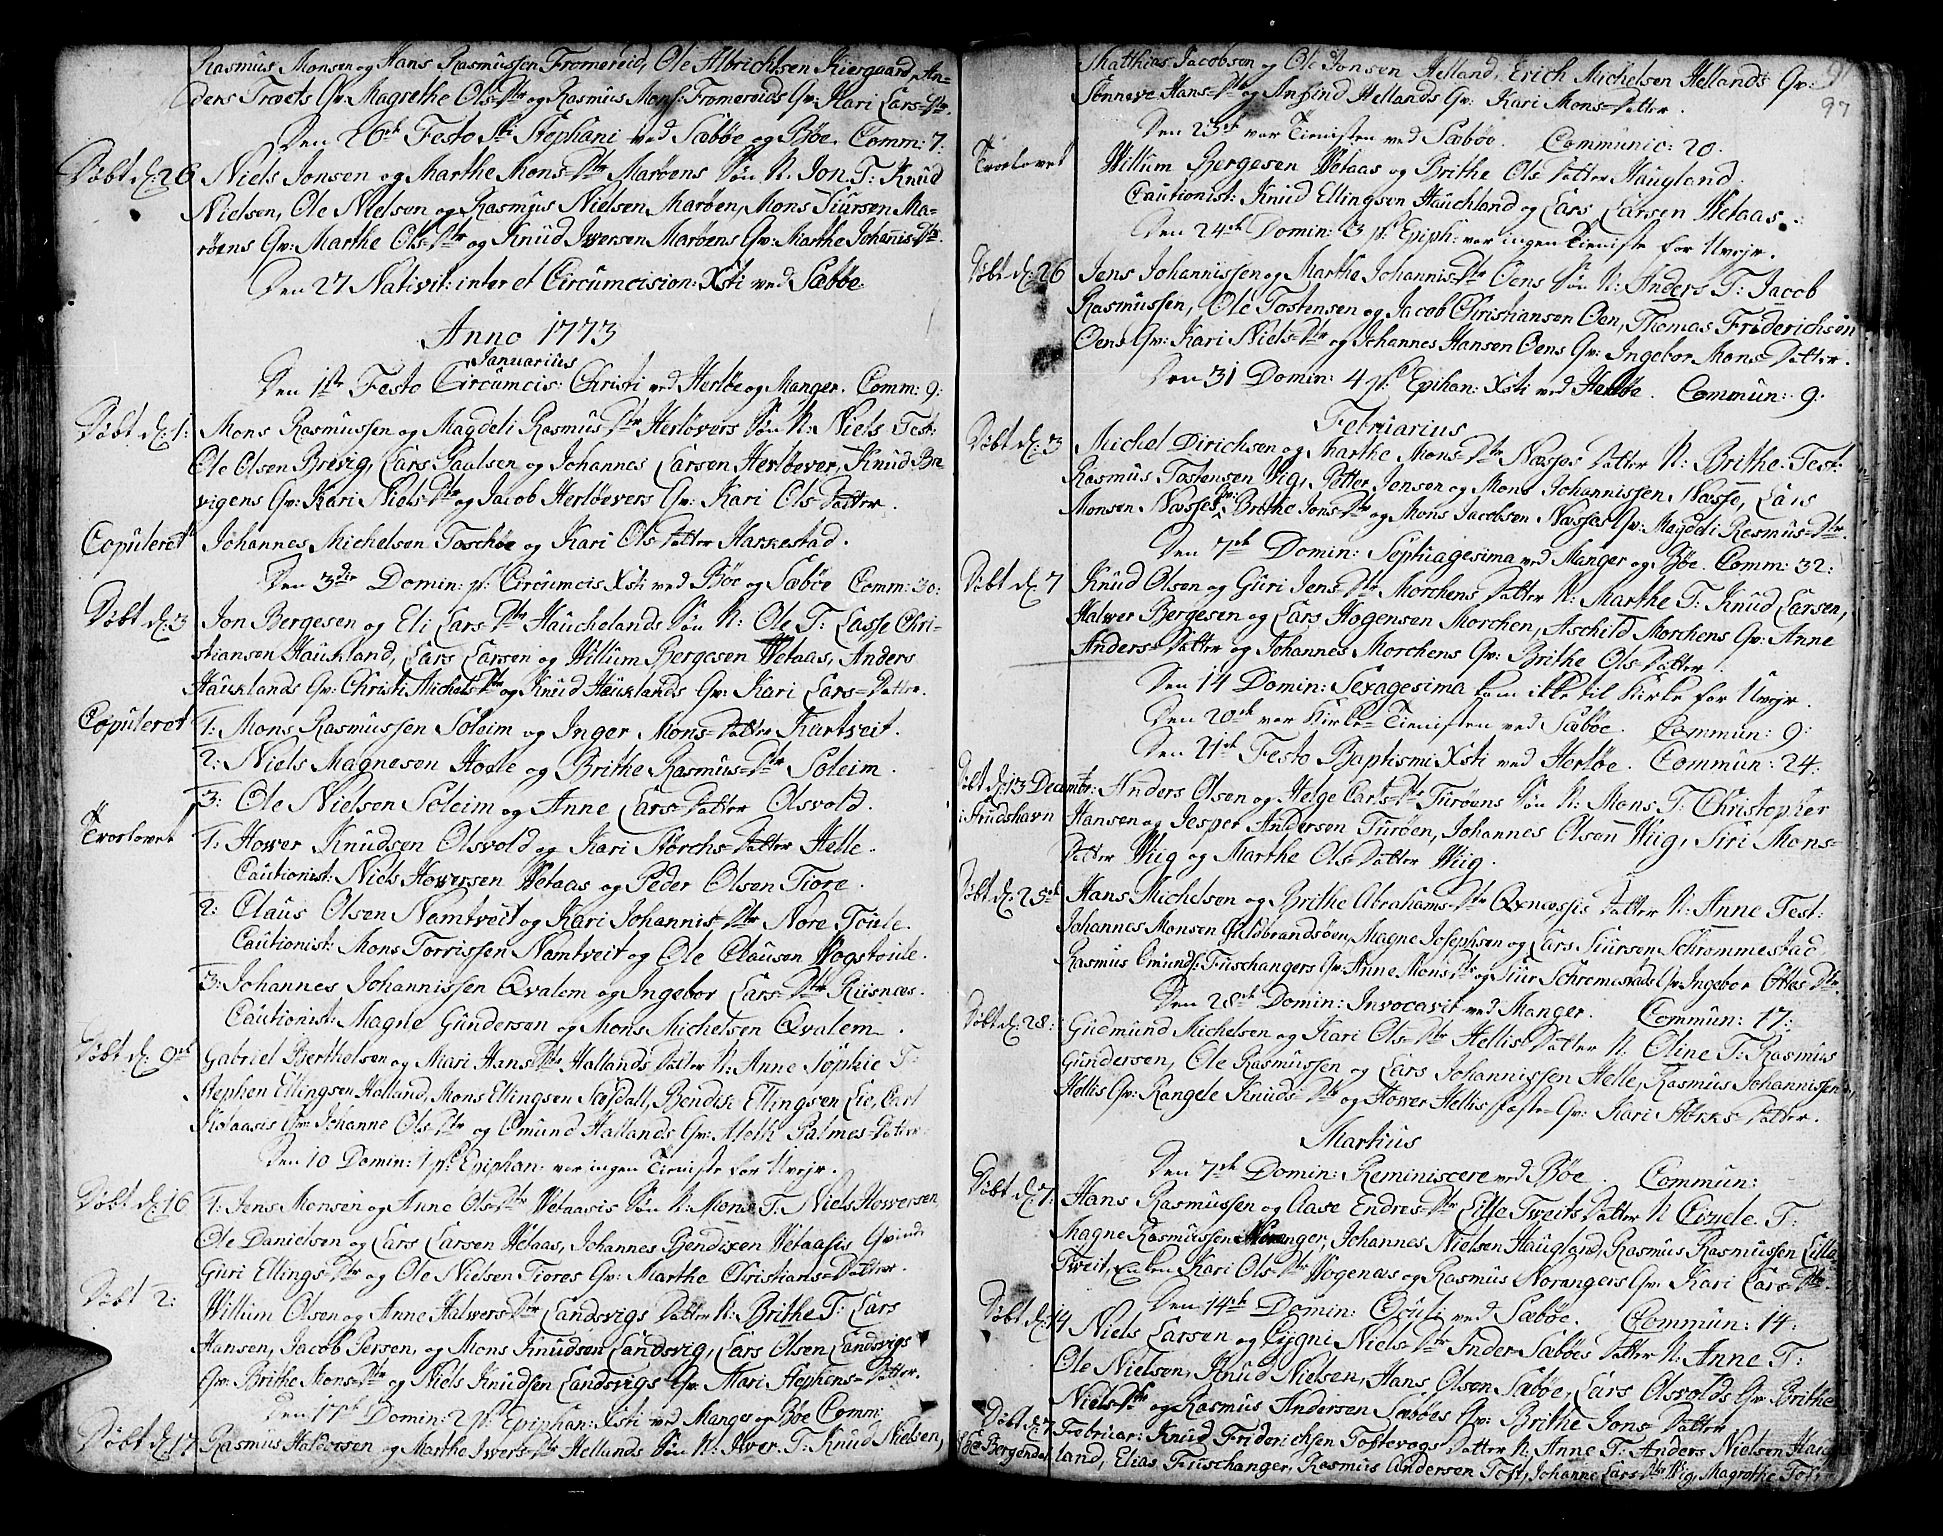 Rasmus Monsen og Hans Rasmussen Fromereid, Ole Albrichtsen Kiergaard, An-
ders Trovets Qv: Magrethe Ols=Dtr og Rasmus Mons: Fromereids Qv: Kari Lars=Dtr.
Den 26de Festo Sti Stephani ved Sæbøe og Bøe. Comm: 7.
Døbt d: 26 Niels Jonsen og Marthe Mons=Dtr Marøens Søn N: Jon. T: Knud
Nielsen, Ole Nielsen og Rasmus Nielsen Marøen, Mons Siursen Ma-
røens Qv: Marthe Ols=Dtr og Knud Iversen Marøens Qv: Marthe Johanis=Dtr.
Den 27 Nativit: inter et Circumcision: Xsti ved Sæbøe.
Anno 1773
Januarius
Den 1ste Festo Circumcis: Christi ved Herløe og Manger. Comm: 9:
Døbt d: 1: Mons Rasmussen og Magdeli Rasmus=Dtr Herløvers Søn N: Niels Test:
Ole Olsen Brevig, Lars Paulsen og Johannes Larsen Herløever, Knud Bre
vigens Qv: Kari Niels=Dtr og Jacob Herløevers Qv: Kari Ols=Datter.
Copuleret Johannes Michelsen Toschøe og Kari Ols=Datter Harkestad.
Den 3die Domin: p: Circumcis Xsti ved Bøe og Sæbøe Comm: 30:
Døbt d: 3 Jon Bergesen og Eli Lars=Dtr Hauchelands Søn N: Ole T: Lasse Chri-
stiansen Haukland, Lars Larsen og Willum Bergesen Wetaas, Anders
Hauklands Qv: Christi Michels=Dtr og Knud Hauklands Qv: Kari Lars=Datter.
Copuleret 1: Mons Rasmussen Soleim og Inger Mons=Datter Kartveit.
2: Niels Magnesen Hoele og Brithe Rasmus=Dtr Soleim.
3: Ole Nielsen Soleim og Anne Lars=Datter Olsvold.
Trolovet 1: Hower Knudsen Olsvold og Kari Størchs=Datter Helle.
Cautionist: Niels Howersen Wetaas og Peder Olsen Fiore.
2: Claus Olsen Namtveit og Kari Johannis=Dtr Nore Toule.
Cautionist: Mons Torrissen Namtveit og Ole Clausen Wogstoule.
3: Johannes Johannissen Qvalem og Ingebor Lars=Dtr Riisnæs.
Cautionist: Magne Gundersen og Mons Michelsen Qvalem.
Døbt d: 9de Gabriel Berthelsen og Mari Hans=Dtr Hallands Datter N: Anne Sophie T:
Stephen Ellingsen Halland, Mons Ellingsen Sæfdall, Bendix Ellingsen Lie, Carl
Kolaasis Qv: Johanne Ols=Dtr og Omund Hallands Qv: Aleth Palmes=Datter.
Den 10 Domin: 1 p: Epiphan: var ingen Tieniste for Uvejr.
Døbt d: 16 1: Jens Monsen og Anne Ols=Dtr Wetaasis Søn N: Mons T: Niels Howersen
Ole Danielsen og Lars Larsen Wetaas, Johannes Bendixen Wetaasis Qvinde
Guri Ellings=Dtr og Ole Nielsen Fiores Qv: Marthe Christians=Datter.
Døbt 2: Willum Olsen og Anne Halvers=Dtr Landsvigs Datter N: Brithe T: Lars
Hansen, Jacob Persen, og Mons Knudsen Landsvig, Lars Olsen Landsvigs
Qv: Brithe Mons=Dtr og Niels Knudsen Landsvigs Qv: Mari Stephens=Datter.
Den 17de Domin: 2 p: Epiphan: Xsti ved Manger og Bøe Comm:
Døbt d: 17 Rasmus Haldorsen og Marthe Ivers=Dtr Hellands Søn N: Iver T: Knud Nielsen,
97
Matthias Jacobsen og Ole Jonsen Helland, Erich Michelsen Hellands Qv:
Sønneve Hans=Dtr og Anfind Hellands Qv: Kari Mons=Datter.
Den 23de var Tienisten ved Sæbøe. Communic: 20.
Trolovet Willum Bergesen Wetaas og Brithe Ols Datter Haugland.
Cautionist: Knud Ellingsen Hauchland og Lars Larsen Wetaas.
Den 24de Domin: 3 p: Epiph: var ingen Tieniste for Uvejr.
Døbt d: 26 Jens Johannissen og Marthe Johannis=Dtr Oens Søn N: Anders T: Jacob
Rasmussen, Ole Tostensen og Jacob Christiansen Oen, Thomas Friderichsen
Oens Qv: Kari Niels=Dtr og Johannes Hansen Oens Qv: Ingebor Mons=Datter.
Den 31 Domin: 4 p: Epihan: Xsti ved Herløe. Commun: 9.
Februarius
Døbt d: 3 Michel Dirichsen og Marthe Mons=Dtr Næsses Datter N: Brithe. Test:
Rasmus Tostensen Wig, Petter Jensen og Mons Johannissen Næsse, Lars
Monsen Næsses Qv: Brithe Jons=Dtr og Mons Jacobsen Næsses Qv: Magdeli Rasmus=Dtr.
Den 7de Domin: Septuagesima ved Manger og Bøe. Comm: 32:
Døbt d: 7 Knud Olsen og Guri Jens=Dtr Morchens Datter N: Marthe T: Knud Larsen,
Halver Bergesen og Lars Hogensen Morchen, Aschild Morchens Qv: Anne
Anders=Datter og Johannes Morchens Qv: Brithe Ols=Datter.
Den 14 Domin: Sexagesima kom ikke til Kirke for Uvejr.
Den 20de var Kirke=Tienisten ved Sæbøe. Commun: 9:
Den 21de Festo Baptismi Xsti ved Herløe. Commun: 24.
Døbt d: 13 Decembr: Anders Olsen og Helge Carls=Dtr Turøens Søn N: Mons T: Christopher
i Strudshavn Hansen og Jesper Andersen Turøen, Johannes Olsen Wiig, Siri Mons=
Datter Wiig og Marthe Ols=Datter Wiig.
Døbt d: 25de Hans Michelsen og Brithe Abrahams=Dtr Oxnæssis Datter N: Anne Test:
Johannes Monsen Hildbrandsøen, Magne Josephsen og Lars Siursen Schrommestad
Rasmus Omunds: Fuschangers Qv: Anne Mons=Dtr og Siur Schromestads Qv: Ingebor Ottes=Dtr.
Den 28de Domin: Invocavit ved Manger. Commun: 17:
Døbt d: 28: Gudmund Michelsen og Kari Ols=Dtr Hellis Datter N: Oline T: Rasmus
Gundersen, Ole Rasmussen og Lars Johannissen Helle, Rasmus Johannissen
Hellis Qv: Rangele Knuds=Dtr og Hower Hellis Fæste=Qv: Kari Størks=Datter.
Martius
Den 7de Domin: Reminiscere ved Bøe. Commun:
Døbt d: 7: Hans Rasmussen og Aase Endres=Dtr Lille Tweits Datter N: T:
Magne Rasmussen Noranger, Johannes Nielsen Haugland, Rasmus Rasmussen Lille
Tweit, Enken Kari Ols=Dtr Wogenæs og Rasmus Norangers Qv: Kari Lars=Dtr.
Den 14de Domin: Oculi ved Sæbøe. Commun: 14.
Døbt d: 14 Niels Larsen og Niels=Dtr Inder Sæbøes Datter N: Anne T:
Ole Nielsen, Knud Nielsen, Hans Olsen Sæbøe, Lars Olsvolds Qv: Brithe
Niels=Dtr og Rasmus Andersen Sæbøes Qv: Brithe Jons=Datter
Døbt d: 7 Februar: Knud Friderichsen Toftevogs Datter N: Anne T: Anders Nielsen Haug
i Bergen land, Elias Fuschanger, Rasmus Andersen Toft, Johanne Lars=Dtr Wig, Magrethe Toft,